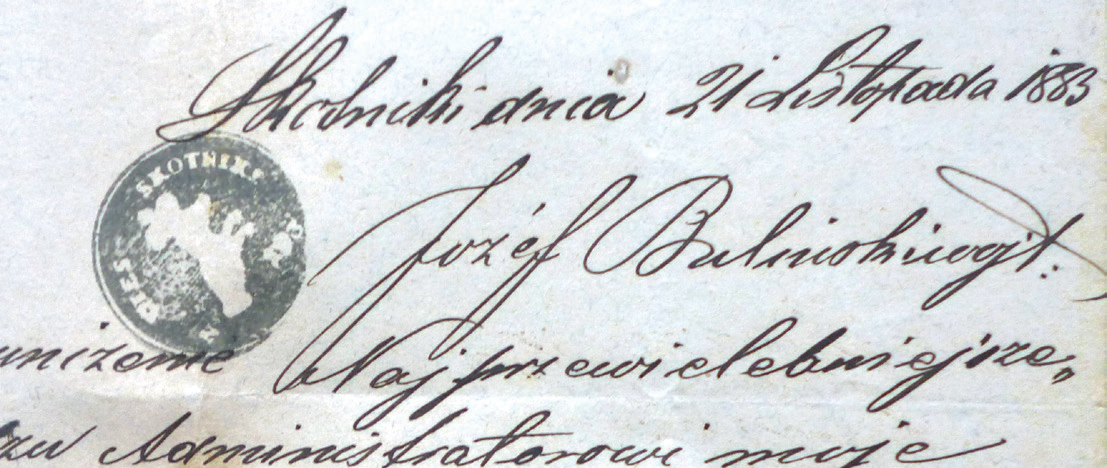 Skotniki dnia 21 Listopada 1883
SKOTNIKI
WIEŚ
Józéf Baliński wojt.
uniżenie Najprzewielebniejsze„
Administratorowi moje